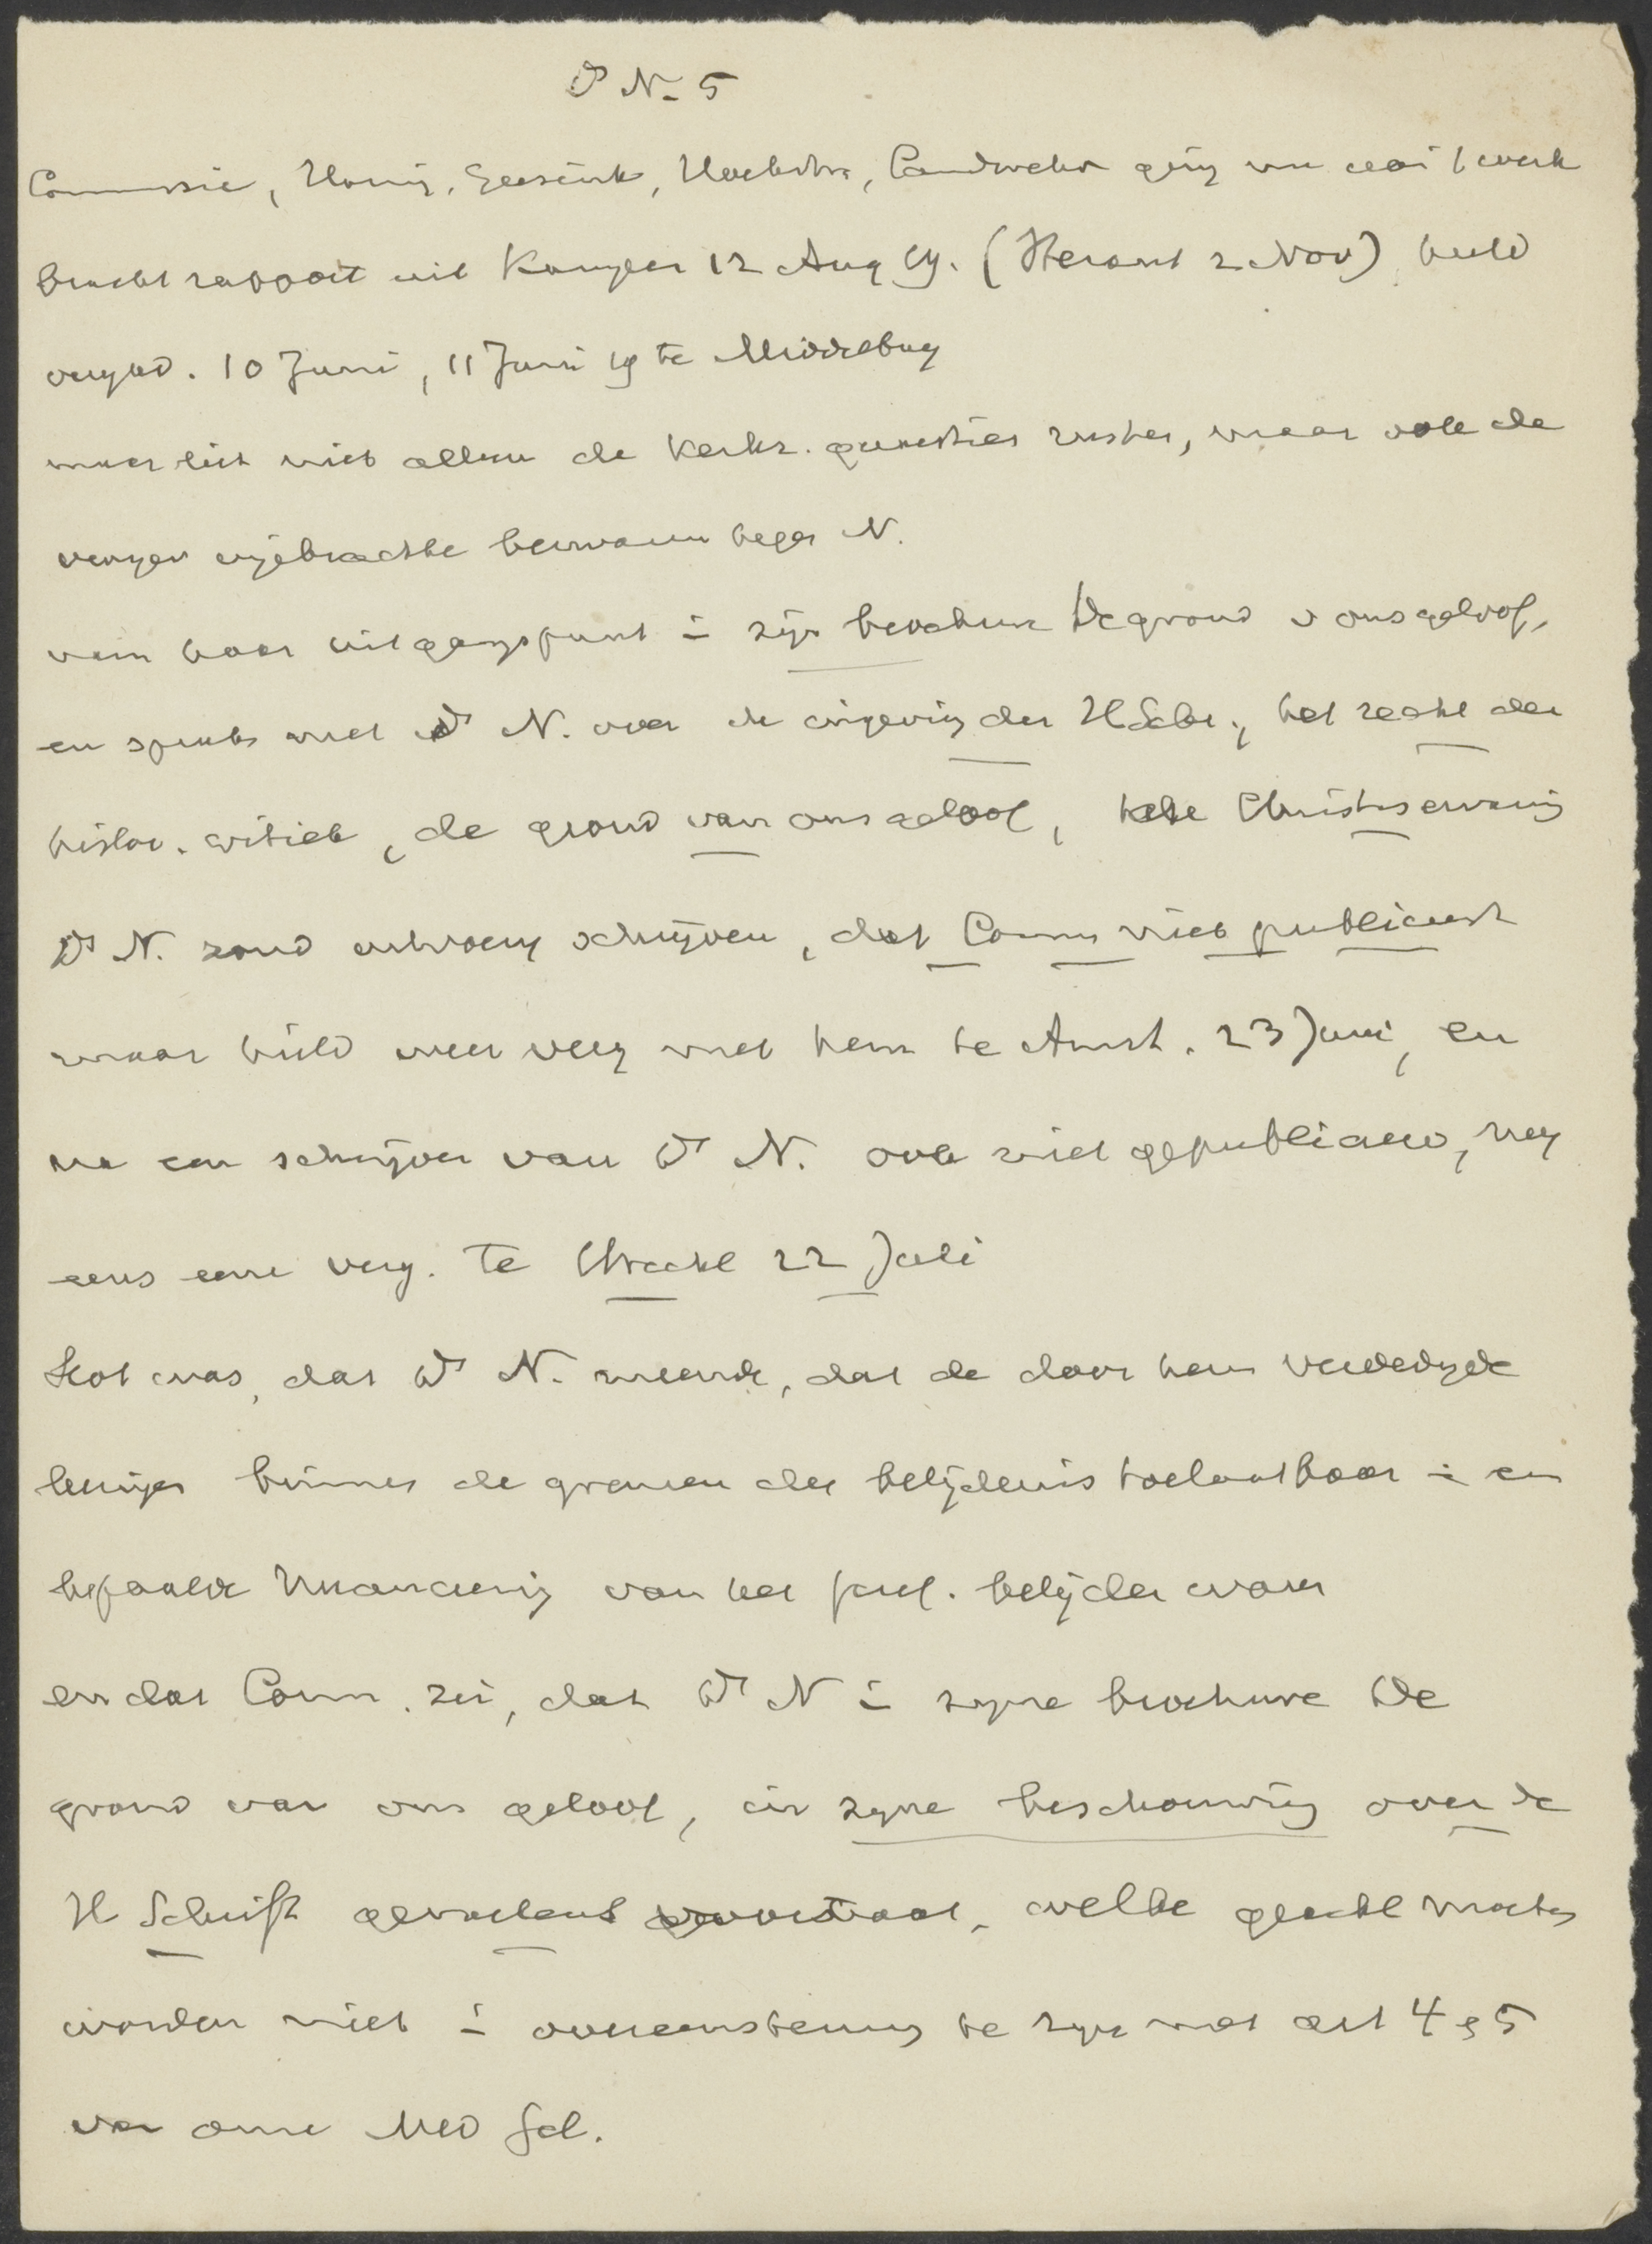 Ds N. 5
Commissie, Honig, Geesink, Hoekstra, Landwehr ging nu aan t werk
bracht rapport uit Kampen 12 Aug 19. (Heraut 2 Nov) hield
vergad. 10 Juni, 11 Juni 19 te Middelburg
maar liet niet alleen de kerkr. quaesties rusten, maar ook de
vroeger ingebrachte bezwaren tegen N.
nam haar uitgangspunt i zijn brochure De grond v ons geloof,
en sprak met Ds N. over de ingeving der H Schr., het recht der
histor. critiek, de grond van ons geloof, de Christuservaring
Ds N. zond uitvoerig schrijven, dat Comm niet publiceert
maar hield weer verg met hem te Amst. 23 Juni, en
na een schrijven van Ds N. ook niet gepubliceerd, nog
eens eene verg. te Utrecht 22 Juli
Slot was, dat Ds N. meende, dat de door hem verdedigde
binnen de grenzen der belijdenis toelaatbaar i en
bepaalde nuanceering van het geref. belijden waren
en dat Comm. zei, dat Ds N i zijne brochure De
grond van ons geloof, in zijne beschouwing over de
H Schrift gevoelens voorstaat, welke geacht moeten
worden niet i overeenstemming te zijn met art 4 & 5
van onze Ned Gel.